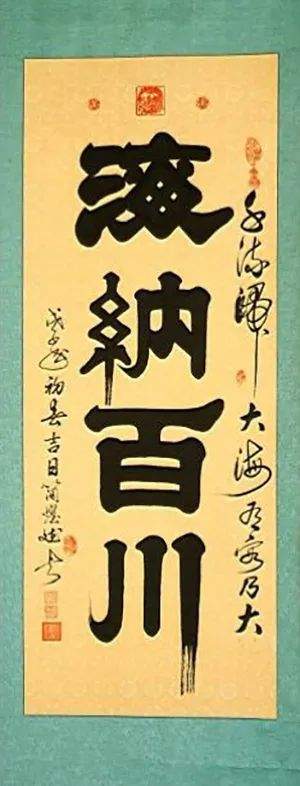 千流歸大海有容乃大
海納百川
戊子初春吉日書